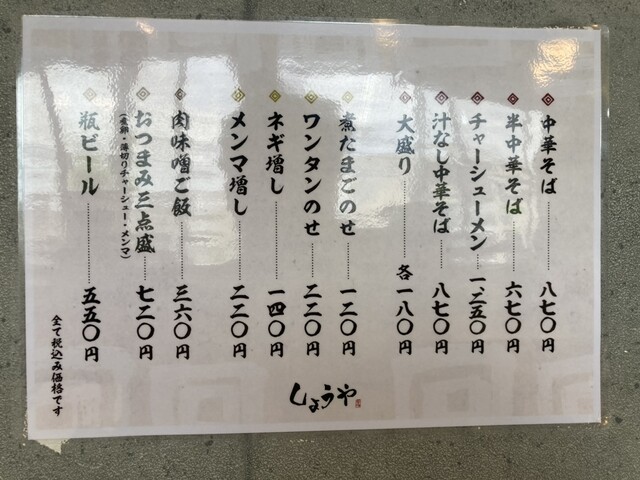 中華そば 八七〇円
半中華そば 六七〇円
チャーシューメン 一、二五〇円
汁なし中華そば 八七〇円
大盛り 各一八〇円
煮たまごのせ 一二〇円
ワンタンのせ 二二〇円
ネギ増し 一四〇円
メンマ増し 二二〇円
肉味噌ご飯 三六〇円
おつまみ三点盛 七二〇円
(煮卵・薄切りチャーシュー・メンマ)
瓶ビール 五五〇円
全て税込み価格です
しょうや